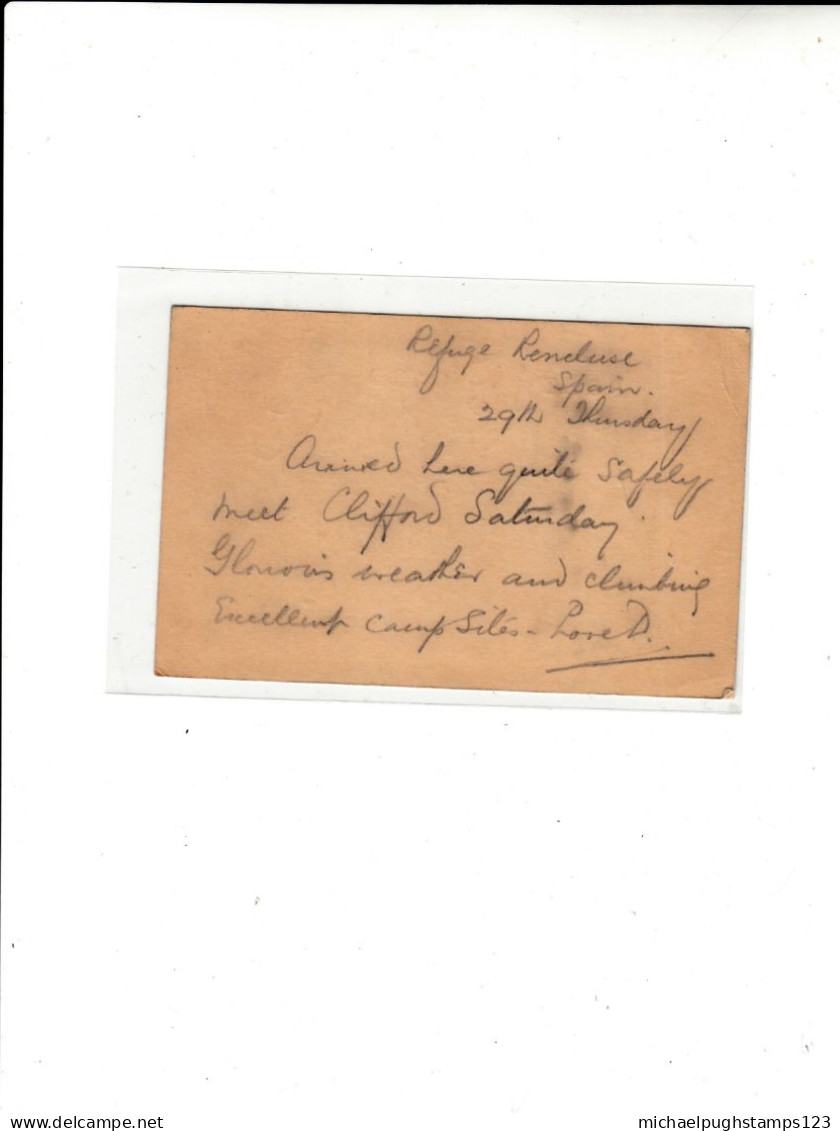 Refuge Rencluse
Spain.
29th Thursday
Arrived here quite safely
meet Clifford Saturday.
Glorious weather and climbing
Excellent camp sites - Love D.
delcampe.net
michaelpughstamps123